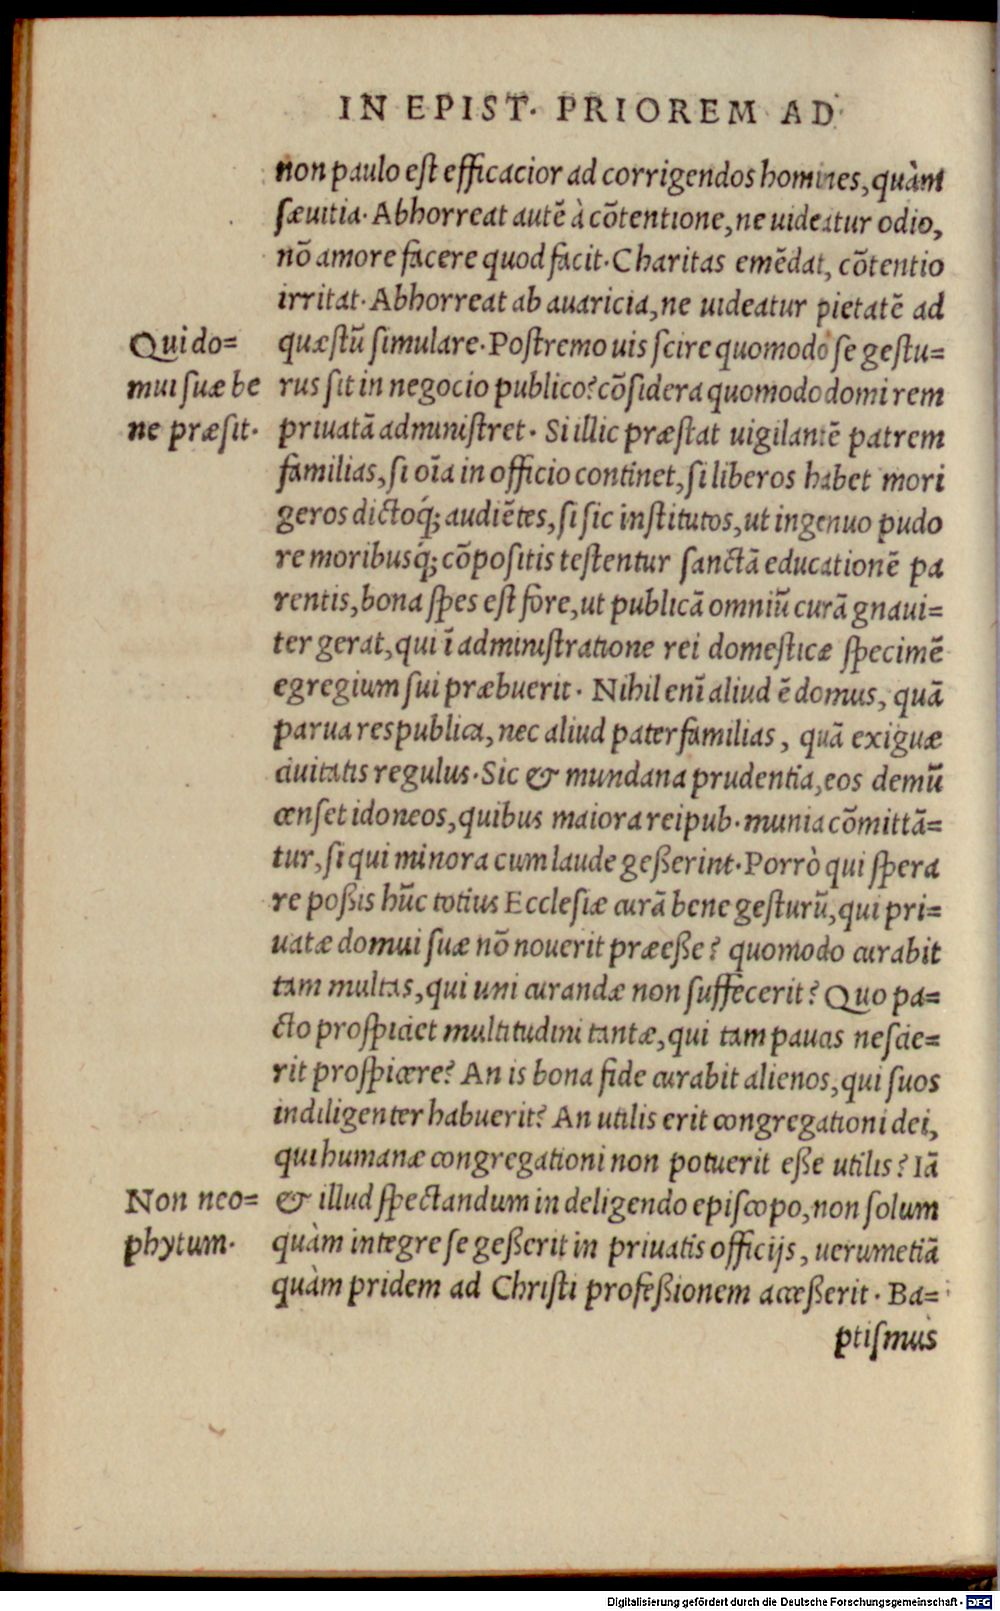 IN EPIST. PRIOREM AD
non paulo eſt efficacior ad corrigendos homines, quàm
ſæuitia. Abhorreat autē à cōtentione, ne uideatur odio,
nō amore facere quod facit. Charitas emēdat, cōtentio
irritat. Abhorreat ab auaricia, ne uideatur pietatē ad
Qui do=
quæſtū ſimulare. Poſtremo uis ſcire quomodo ſe geſtu=
mui ſuæ be
rus ſit in negocio publico? cōſidera quomodo domi rem
ne præſit.
priuatā adminiſtret. Si illic præſtat uigilantē patrem
familias, ſi oīa in officio continet, ſi liberos habet mori
geros dictoq́; audiētes, ſi ſic inſtitutos, ut ingenuo pudo
re moribusq́; cōpoſitis teſtentur ſanctā educationē pa
rentis, bona ſpes eſt fore, ut publicā omniū curā gnaui=
ter gerat, qui ī adminiſtratione rei domeſticæ ſpecimē
egregium ſui præbuerit. Nihil enī aliud ē domus, quā
parua reſpublica, nec aliud paterfamilias, quā exiguæ
ciuitatis regulus. Sic & mundana prudentia, eos demū
cenſet idoneos, quibus maiora reipub. munia cōmittā=
tur, ſi qui minora cum laude geßerint. Porrò qui ſpera
re poßis hūc totius Eccleſiæ curā bene geſturū, qui pri=
uatæ domui ſuæ nō nouerit præeße? quomodo curabit
tam multas, qui uni curandæ non ſuffecerit? Quo pa=
cto proſpiciet multitudini tantæ, qui tam pauas neſcie=
rit proſpicere? An is bona fide curabit alienos, qui ſuos
indiligenter habuerit? An utilis erit congregationi dei,
qui humanæ congregationi non potuerit eße utilis? Iā
Non neo=
& illud ſpectandum in deligendo epiſcopo, non ſolum
phytum.
quàm integre ſe geßerit in priuatis officijs, uerumetiā
quàm pridem ad Chriſti profeßionem acceßerit. Ba=
ptiſmus
Digitalisierung gefördert durch die Deutsche Forschungsgemeinschaft - DFG